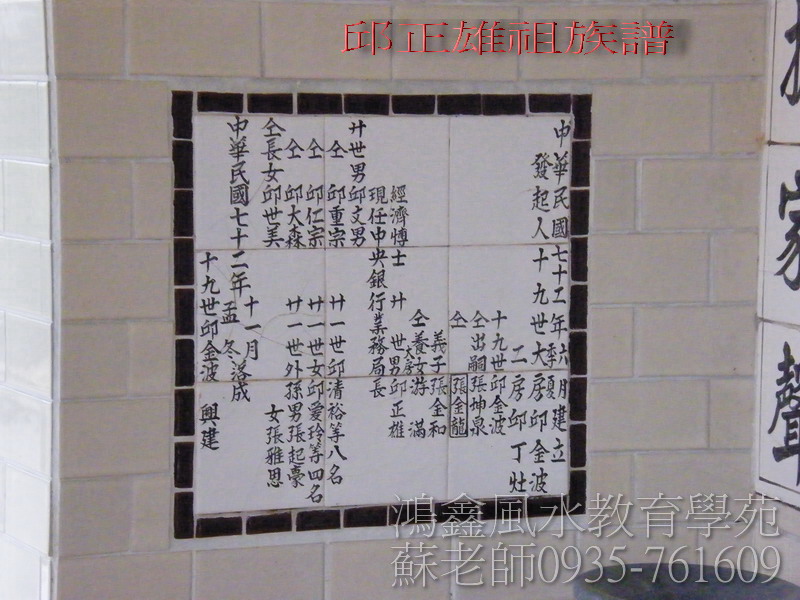 邱正雄祖族譜
振
家
聲
中華民國七十二年六月建立
季夏
發起人十九世大房邱金波
二房邱丁灶
十九世邱金波
仝出嗣張坤泉
仝 張金龍
義子張金和
仝養女游 滿
大房
經濟博士 廿 世男邱正雄
現任中央銀行業務局長
廿世男邱文男
仝 邱重宗 廿一世邱清裕等八名
仝 邱仁宗 廿一世女邱愛玲等四名
仝 邱大森 廿一世外孫男張起豪
仝長女邱世美 女張雅思
中華民國七十二年 十一月 落成
孟冬
十九世邱金波 興建
鴻鑫風水教育學苑
蘇老師0935-761609